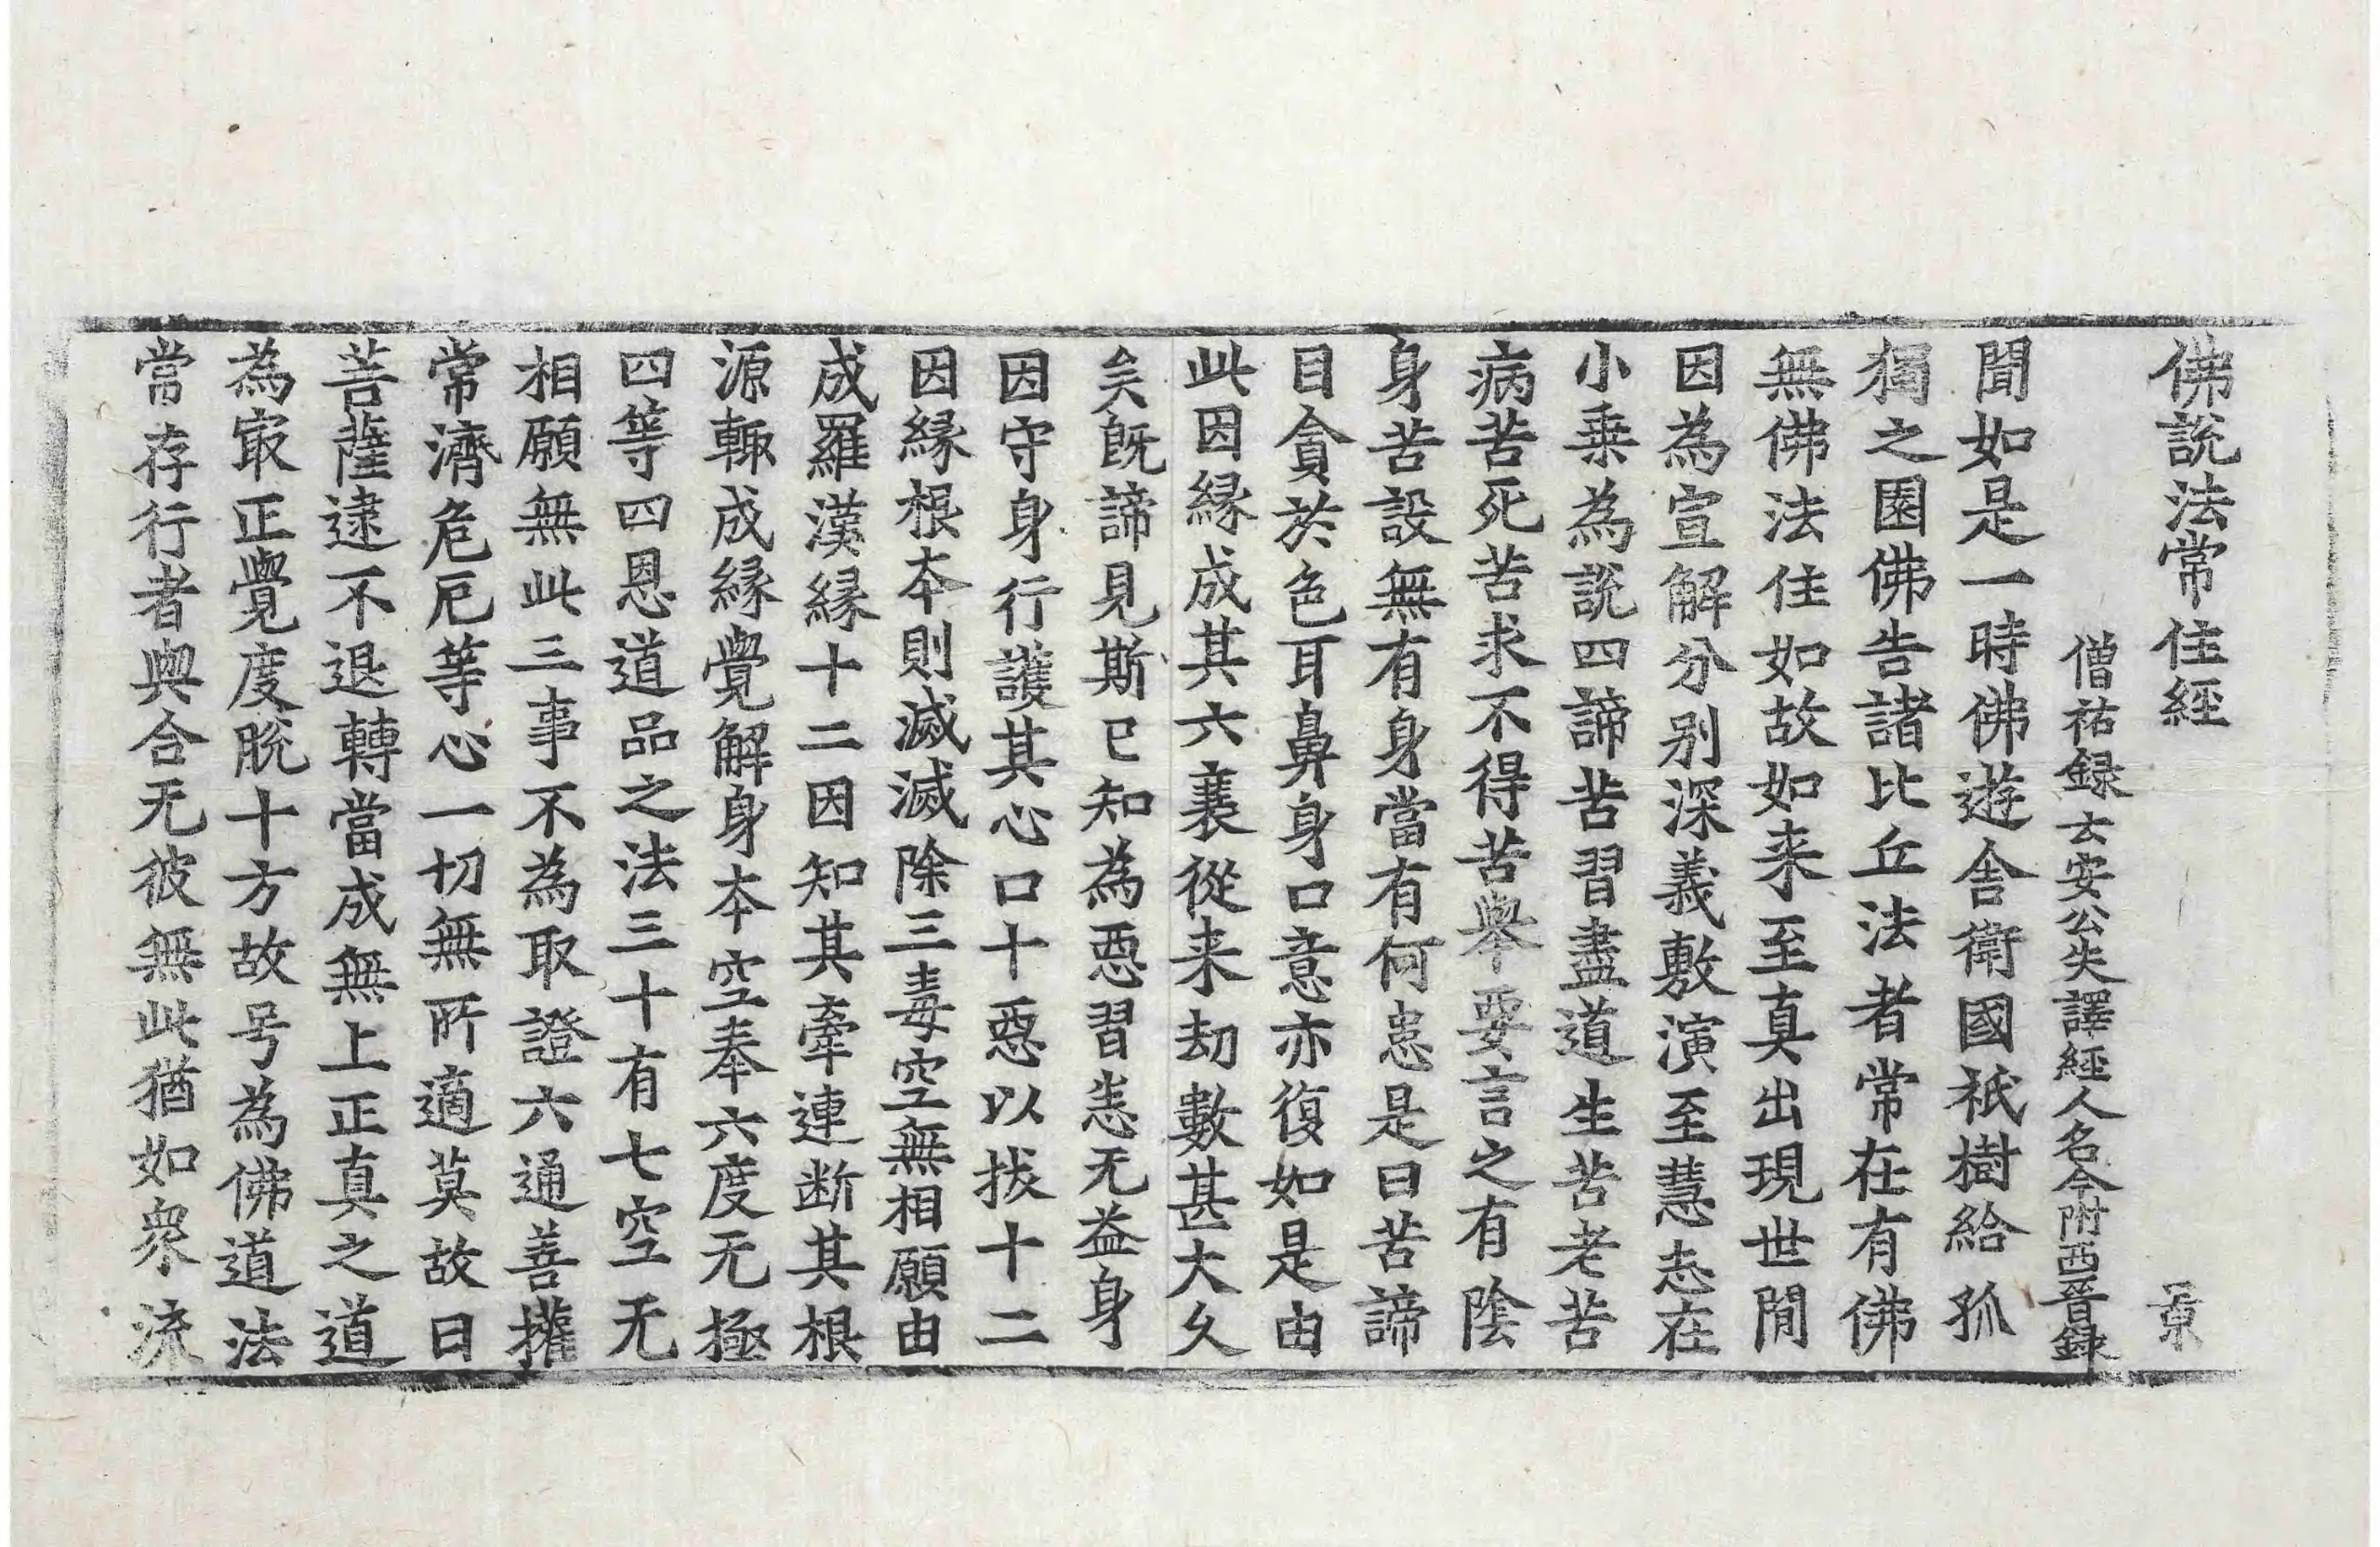 佛說法常住經 景
僧祐録云安公失譯經人名今附西晉録
聞如是一時佛遊舍衛國祇樹給孤
獨之園佛告諸比丘法者常在有佛
無佛法住如故如来至真出現世間
因為宣解分别深義敷演至慧志在
小乗為說四諦苦習盡道生苦老苦
病苦死苦求不得苦舉要言之有陰
身苦設無有身當有何患是曰苦諦
目貪於色耳鼻身口意亦復如是由
此因縁成其六衰從来劫數甚大久
矣旣諦見斯已知為惡習恚无益身
因守身行護其心口十惡以拔十二
因縁根本則滅滅除三毒空無相願由
成羅漢縁十二因知其牽連断其根
源輙成縁覺解身本空奉六度无極
四等四恩道品之法三十有七空无
相願無此三事不為取證六通善權
常濟危厄等心一切無所適莫故曰
菩薩逮不退轉當成無上正真之道
為㝡正覺度脫十方故号為佛道法
當存行者與合无彼無此猶如衆流